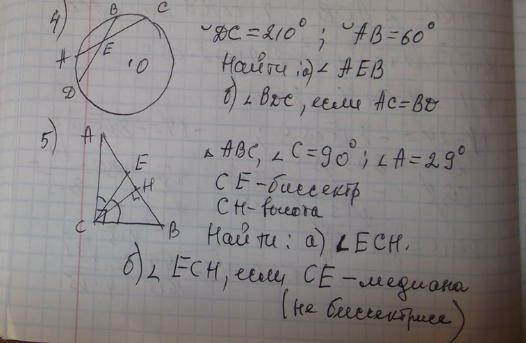 4)
B
C
A
E
O
D
◡DC=210° ; ◡AB=60°
Найти: а) ∠ AEB
б) ∠BDC, если AC=BD
5)
A
E
H
C
B
△ABC, ∠C=90°; ∠A=29°
CE-биссектр
CH-высота
Найти: а) ∠ECH.
б) ∠ ECH, если CE-медиана
(не биссектриса)